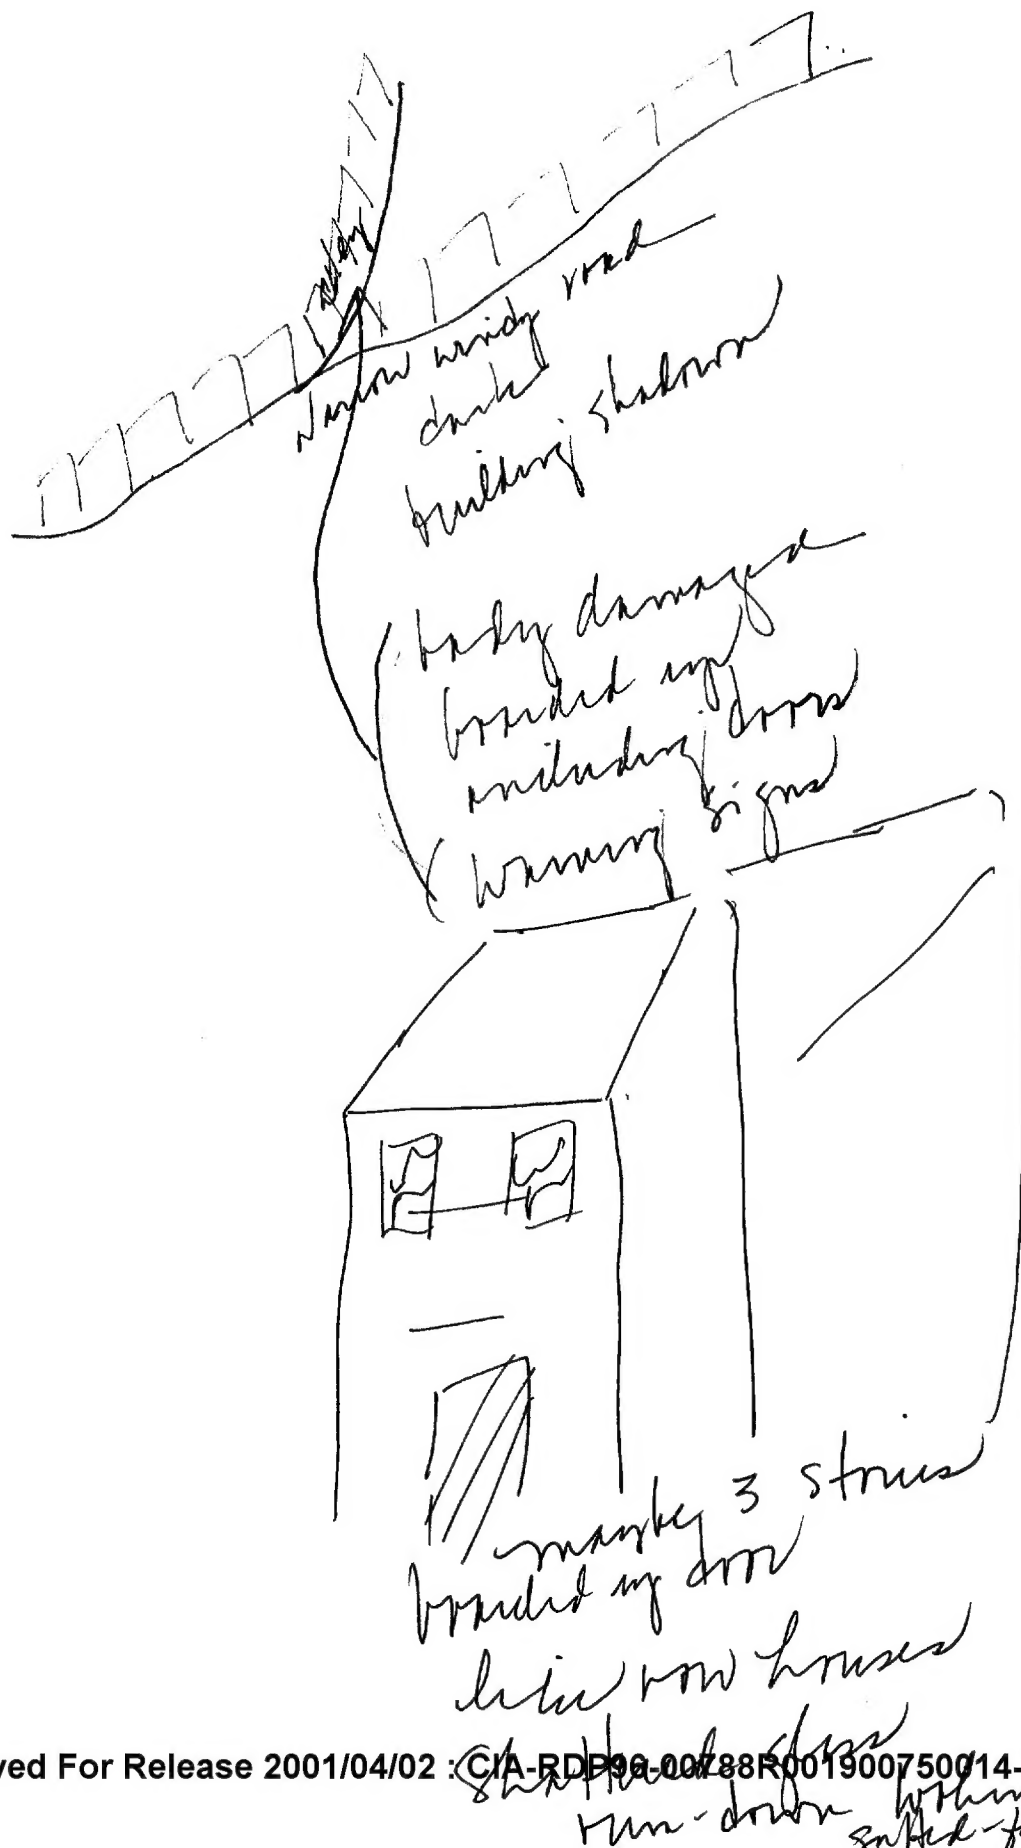 Narrow windy road
dark
building shadows
badly damaged
boarded up
including doors
warning signs
maybe 3 stories
boarded up door
like row houses
shattered glass
ved For Release 2001/04/02 : CIA-RDP96-00788R001900750014-
run-down